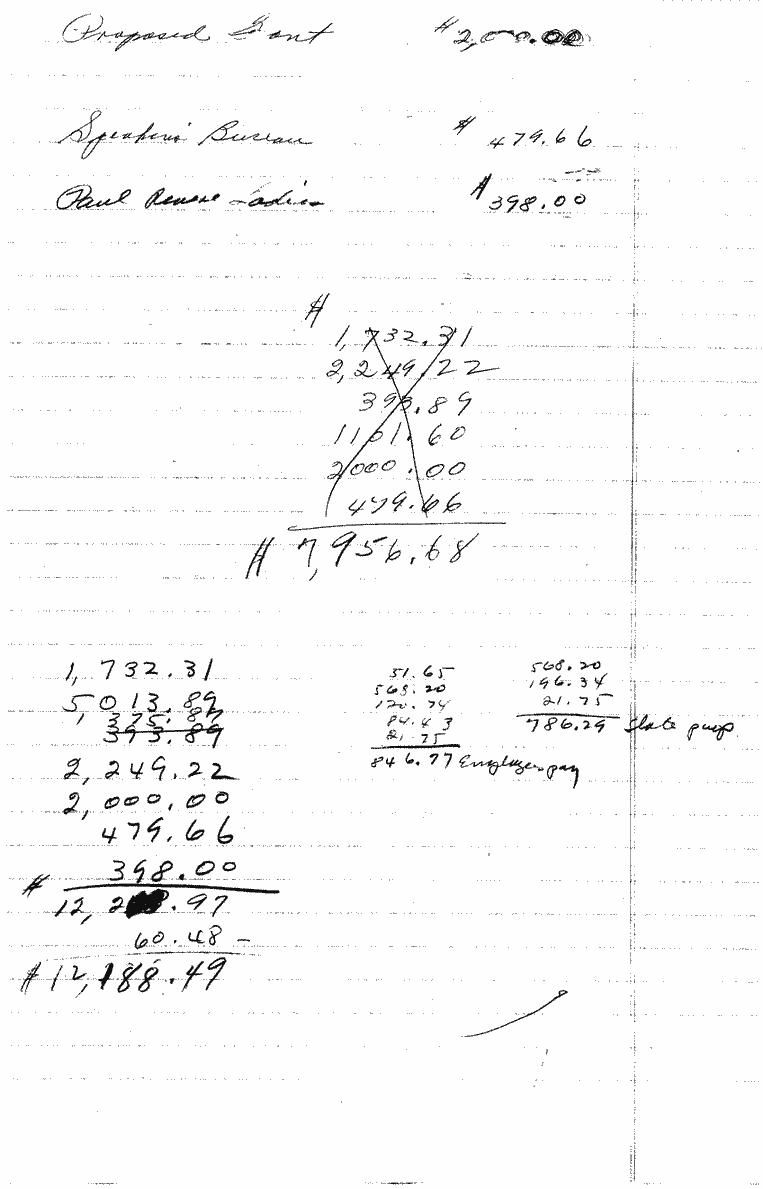 Proposed Gant $2,000.00
Speakin' Bureau $479.66
Paul Revere Ladies $398.00
$
1,732.31
2,249.22
393.89
1101.60
2000.00
479.66
$7,956.68
1,732.31
5,013.89
375.87
393.89
2,249.22
2,000.00
479.66
398.00
$
12,2 .97
60.48 -
$12,188.49
51.65
568.20
120.74
84.43
21.75
846.77 Employee pay
568.20
196.34
21.75
786.29 State